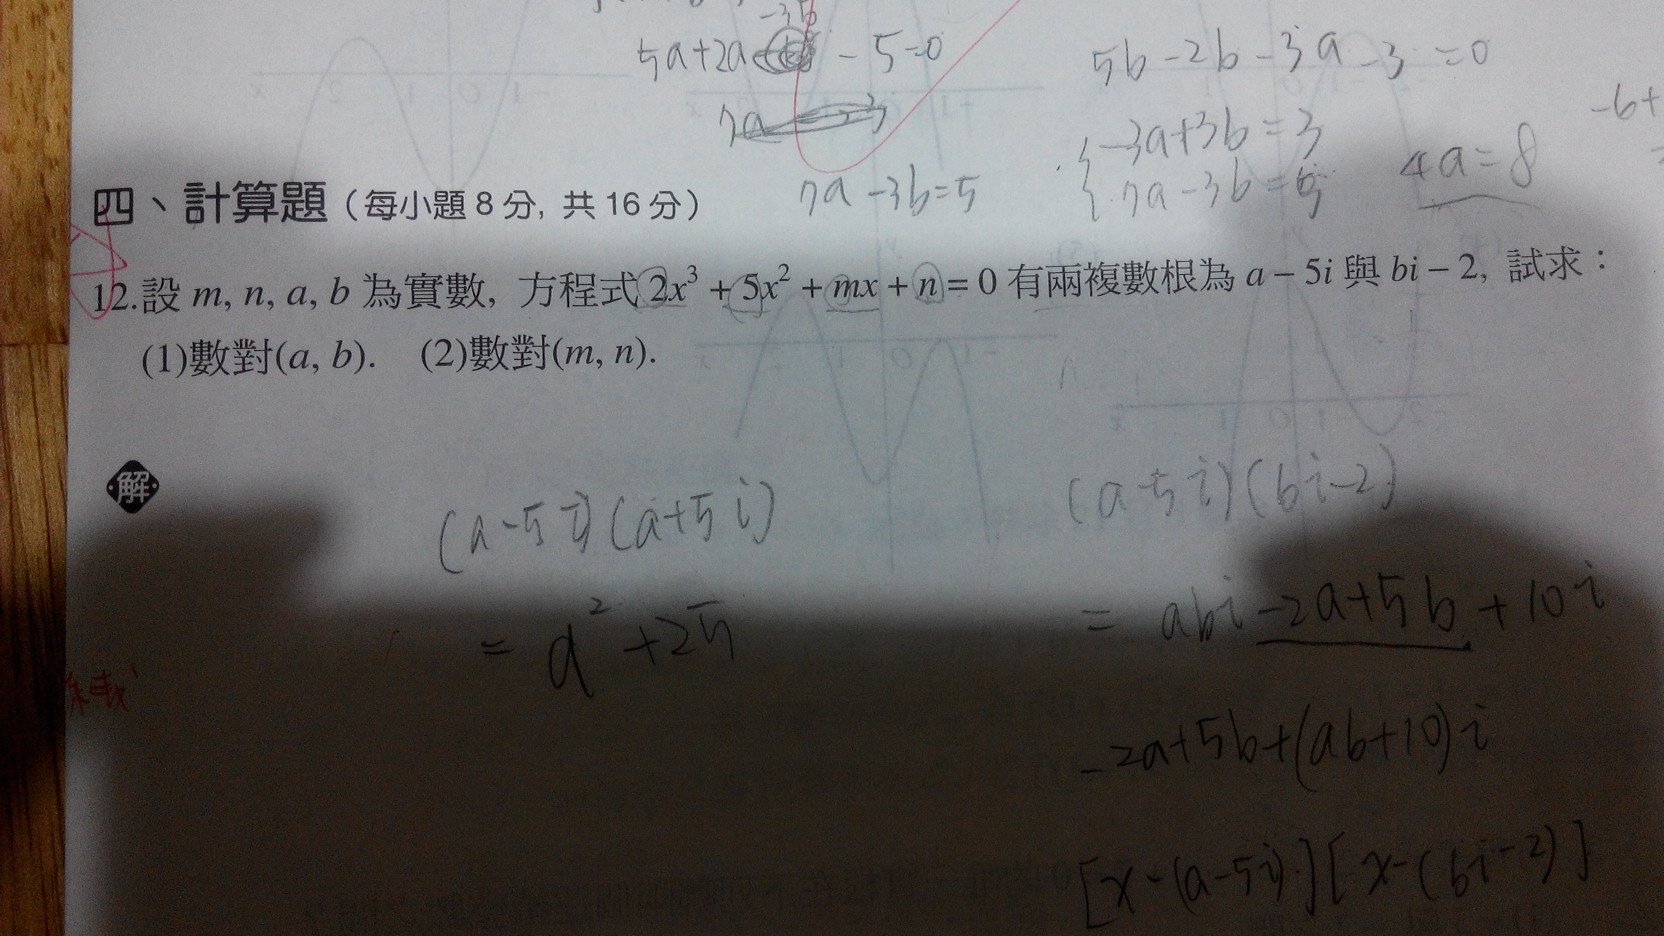 -3b
5a+2a - 5=0
5b-2b-3a-3=0
7a
-3a+3b=3
7a-3b=5
7a-3b=5
4a=8
-6+
四、計算題（每小題8分, 共16分）
12.設 m, n, a, b 為實數, 方程式 2x³ + 5x² + mx + n = 0 有兩複數根為 a – 5i 與 bi – 2, 試求：
(1)數對(a, b). (2)數對(m, n).
解
(a-5i)(a+5i)
= a²+25
(a-5i)(bi-2)
= abi-2a+5b+10i
-2a+5b+(ab+10)i
[x-(a-5i)][x-(bi-2)]